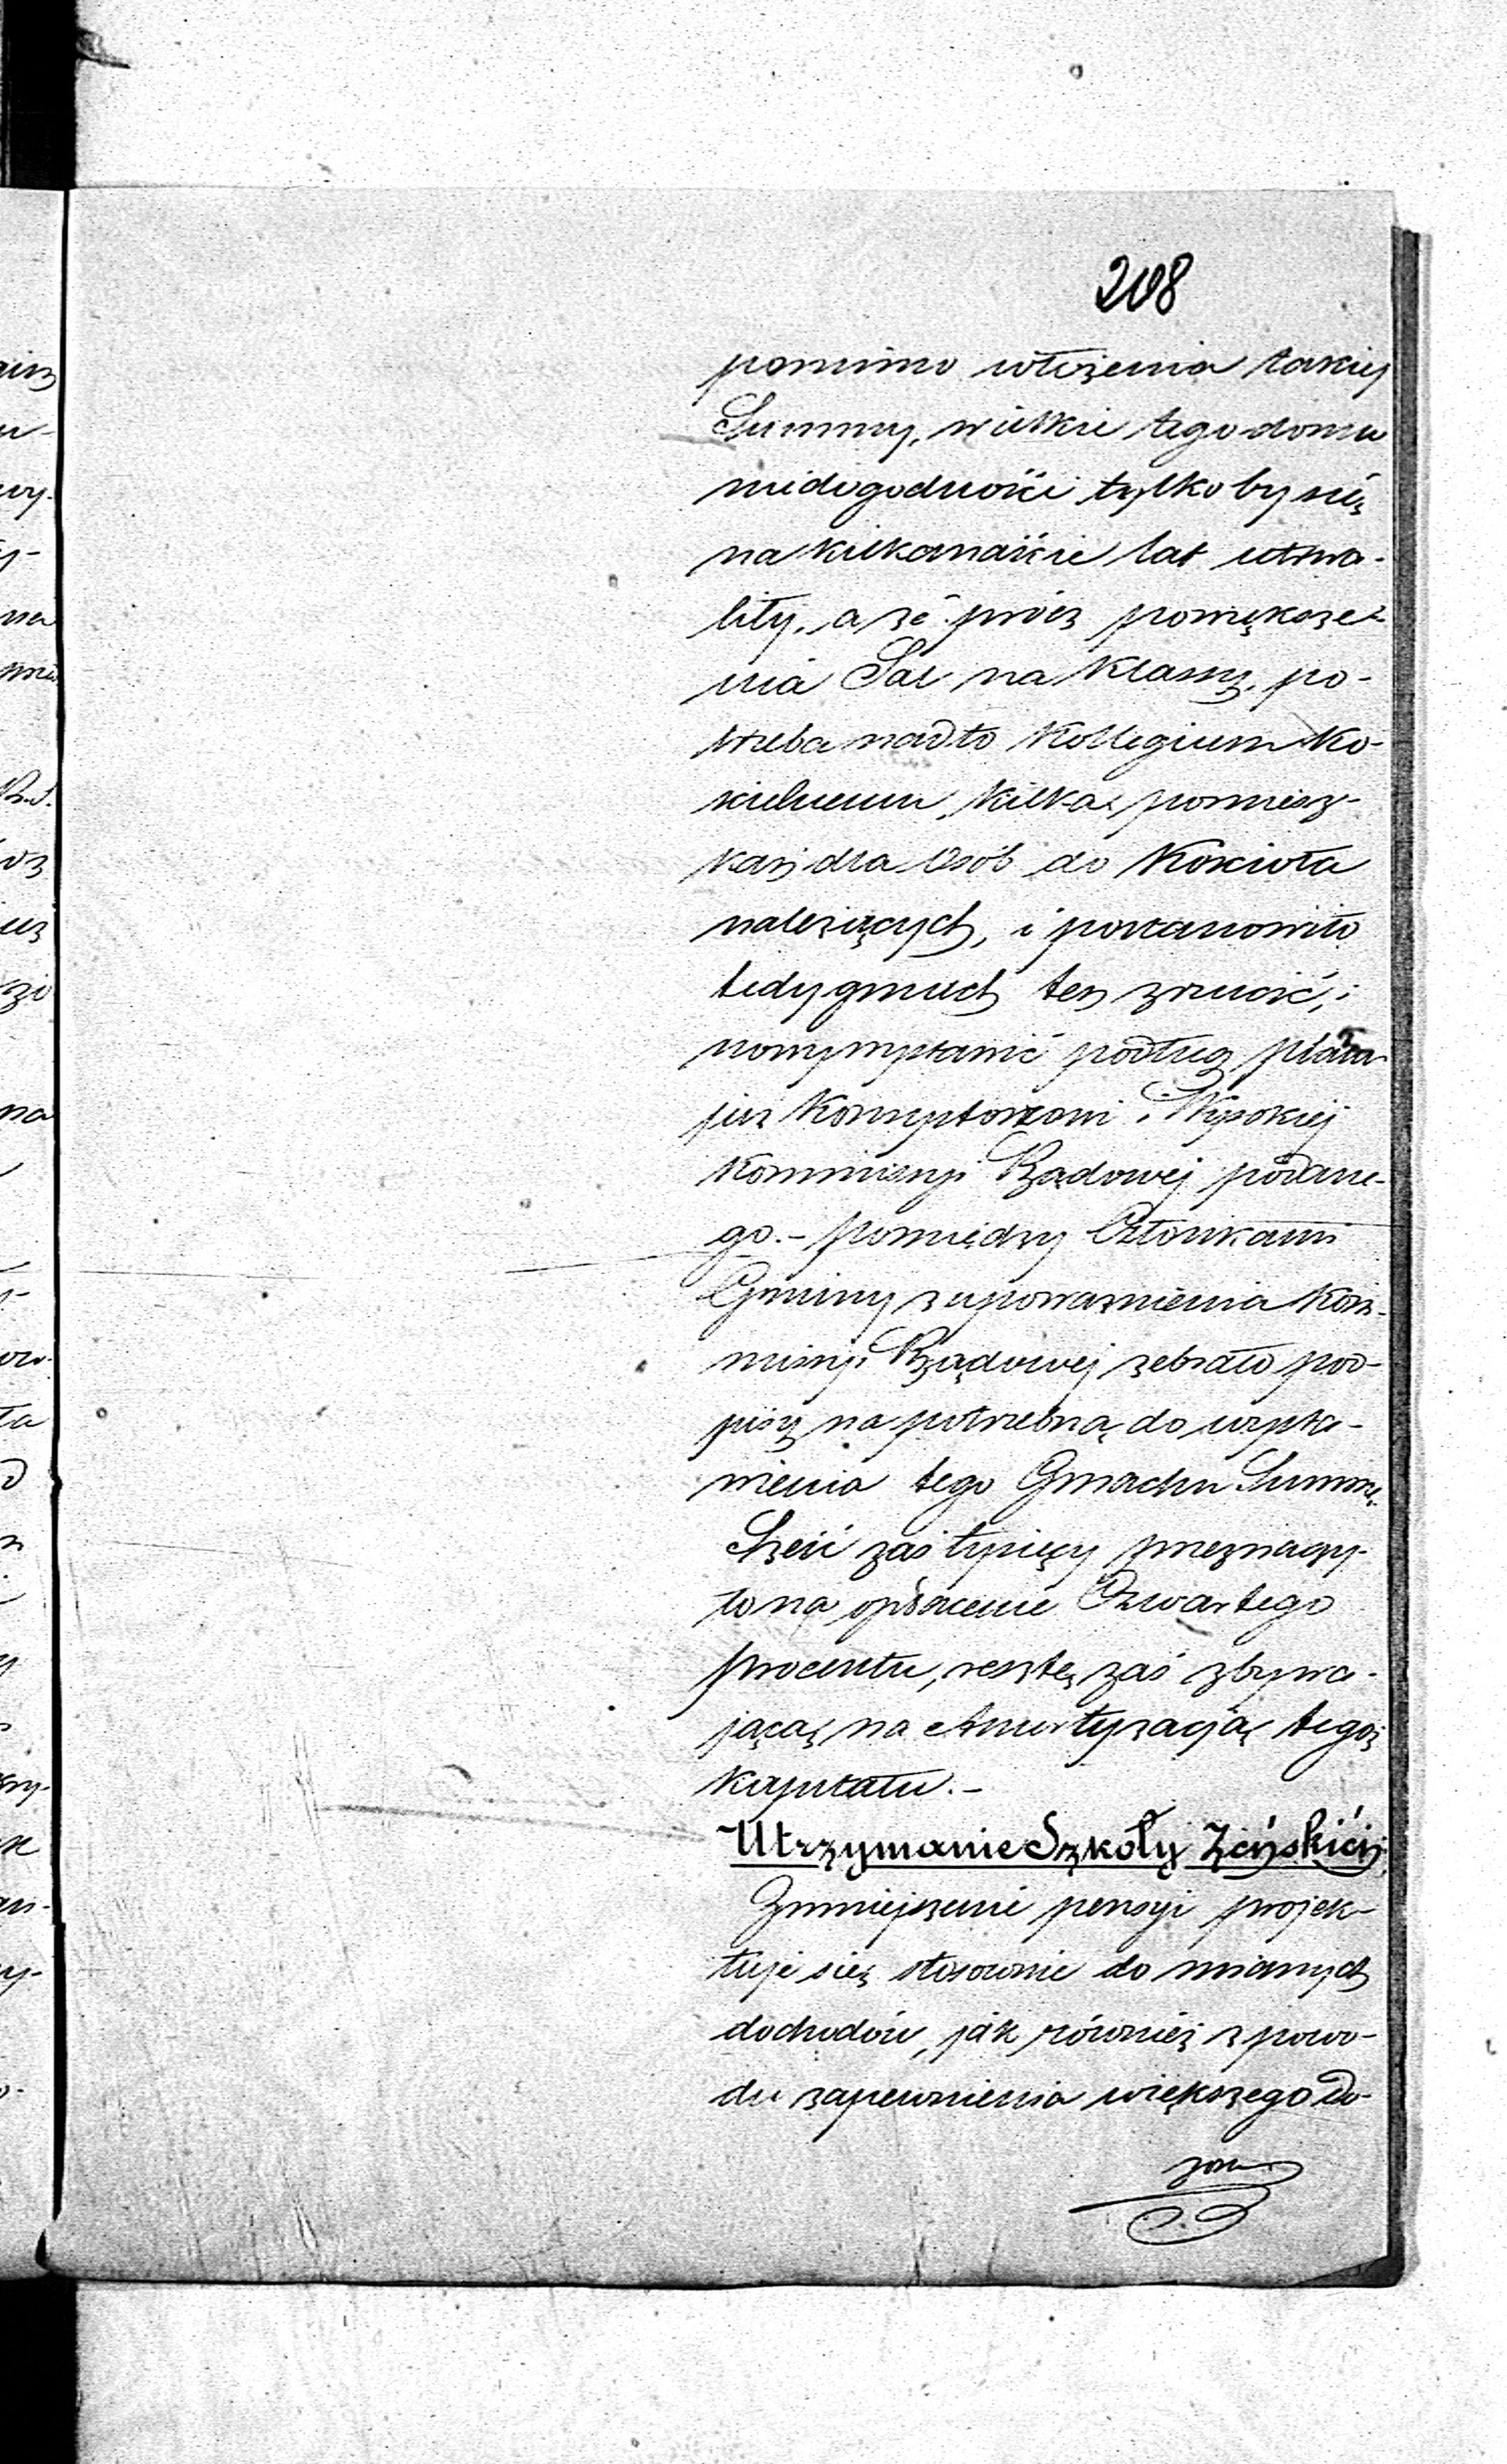 208
pomimo włożenia takiej
Summy, wielkie tego domu
niedogodności tylko by się
na kilkanaście lat utrwa-
liły, a że prócz powiększe-
nia Sal na Klassy, po-
trzeba nadto Kollegium Ko-
ścielnemu, kilka pomiesz-
kań dla Osób do Kościoła
należących, i postanowiło
tedy gmach ten zrzucić, i
nowy wystawić podług planu
już Konsystorzowi i Wysokiej
Kommissyi Rządowej podane-
go.- pomiędzy Członkami
Gminy z upoważnienia Kom-
missyi Rządowej zebrało pod-
pisy na potrzebną do wysta-
wienia tego Gmachu Summę.
Sześć zaś tysięcy przeznaczy-
ło na opłacenie Czwartego
procentu, resztę zaś zbywa-
jącą na Amortyzacją tegoż
kapitału.-
Utrzymanie Szkoły Żeńskiéj
Zmniejszenie pensyi projek-
tuje się stosownie do mianych
dochodów, jak również z powo-
du zapewnienia większego do-